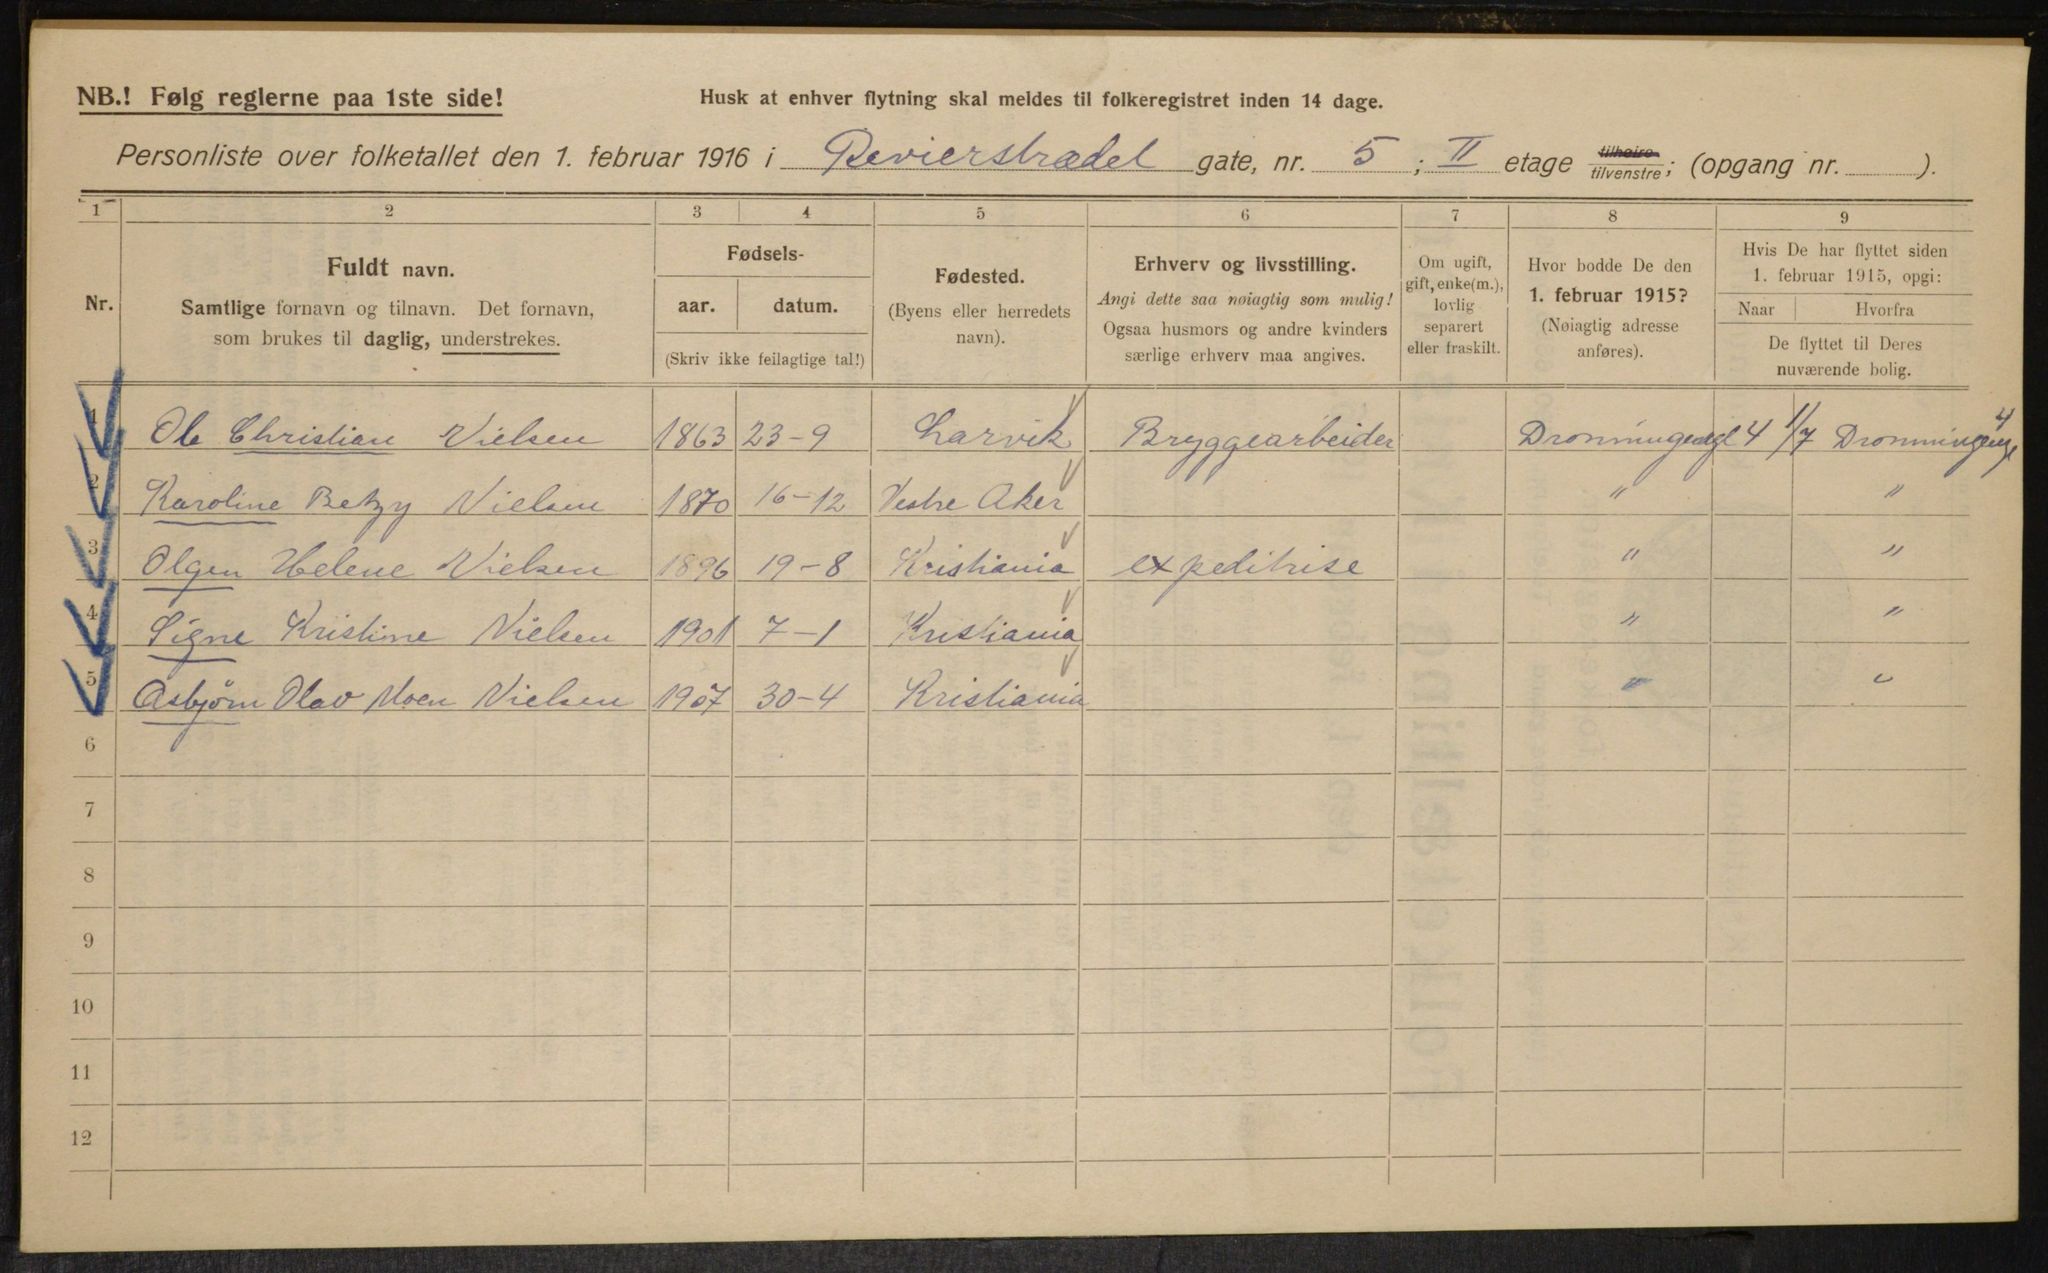 NB.! Følg reglerne paa 1ste side!
Husk at enhver flytning skal meldes til folkeregistret inden 14 dage.
Personliste over folketallet den 1. februar 1916 i Revierstrædet gate, nr. 5 ; II etage tilhøire tilvenstre; (opgang nr. ).
1 2 3 4 5 6 7 8 9
Nr.
Fuldt navn.
Samtlige fornavn og tilnavn. Det fornavn,
som brukes til daglig, understrekes.
Fødsels-
aar. datum.
(Skriv ikke feilagtige tal!)
Fødested.
(Byens eller herredets
navn).
Erhverv og livsstilling.
Angi dette saa nøiagtig som mulig!
Ogsaa husmors og andre kvinders
særlige erhverv maa angives.
Om ugift,
gift, enke(m.),
lovlig
separert
eller fraskilt.
Hvor bodde De den
1. februar 1915?
(Nøiagtig adresse
anføres).
Hvis De har flyttet siden
1. februar 1915, opgi:
Naar Hvorfra
De flyttet til Deres
nuværende bolig.
1 Ole Christian Nielsen 1863 23-9 Larvik Bryggearbeider 4 1/7 4
2 Karoline Betzy Nielsen 1870 16-12 Vestre Aker " "
3 Olgen Helene Nielsen 1896 19-8 Kristiania expeditrise " "
4 Signe Kristine Nielsen 1901 7-1 Kristiania " "
5 Asbjørn Olav Moen Nielsen 1907 30-4 Kristiania " "
6
7
8
9
10
11
12